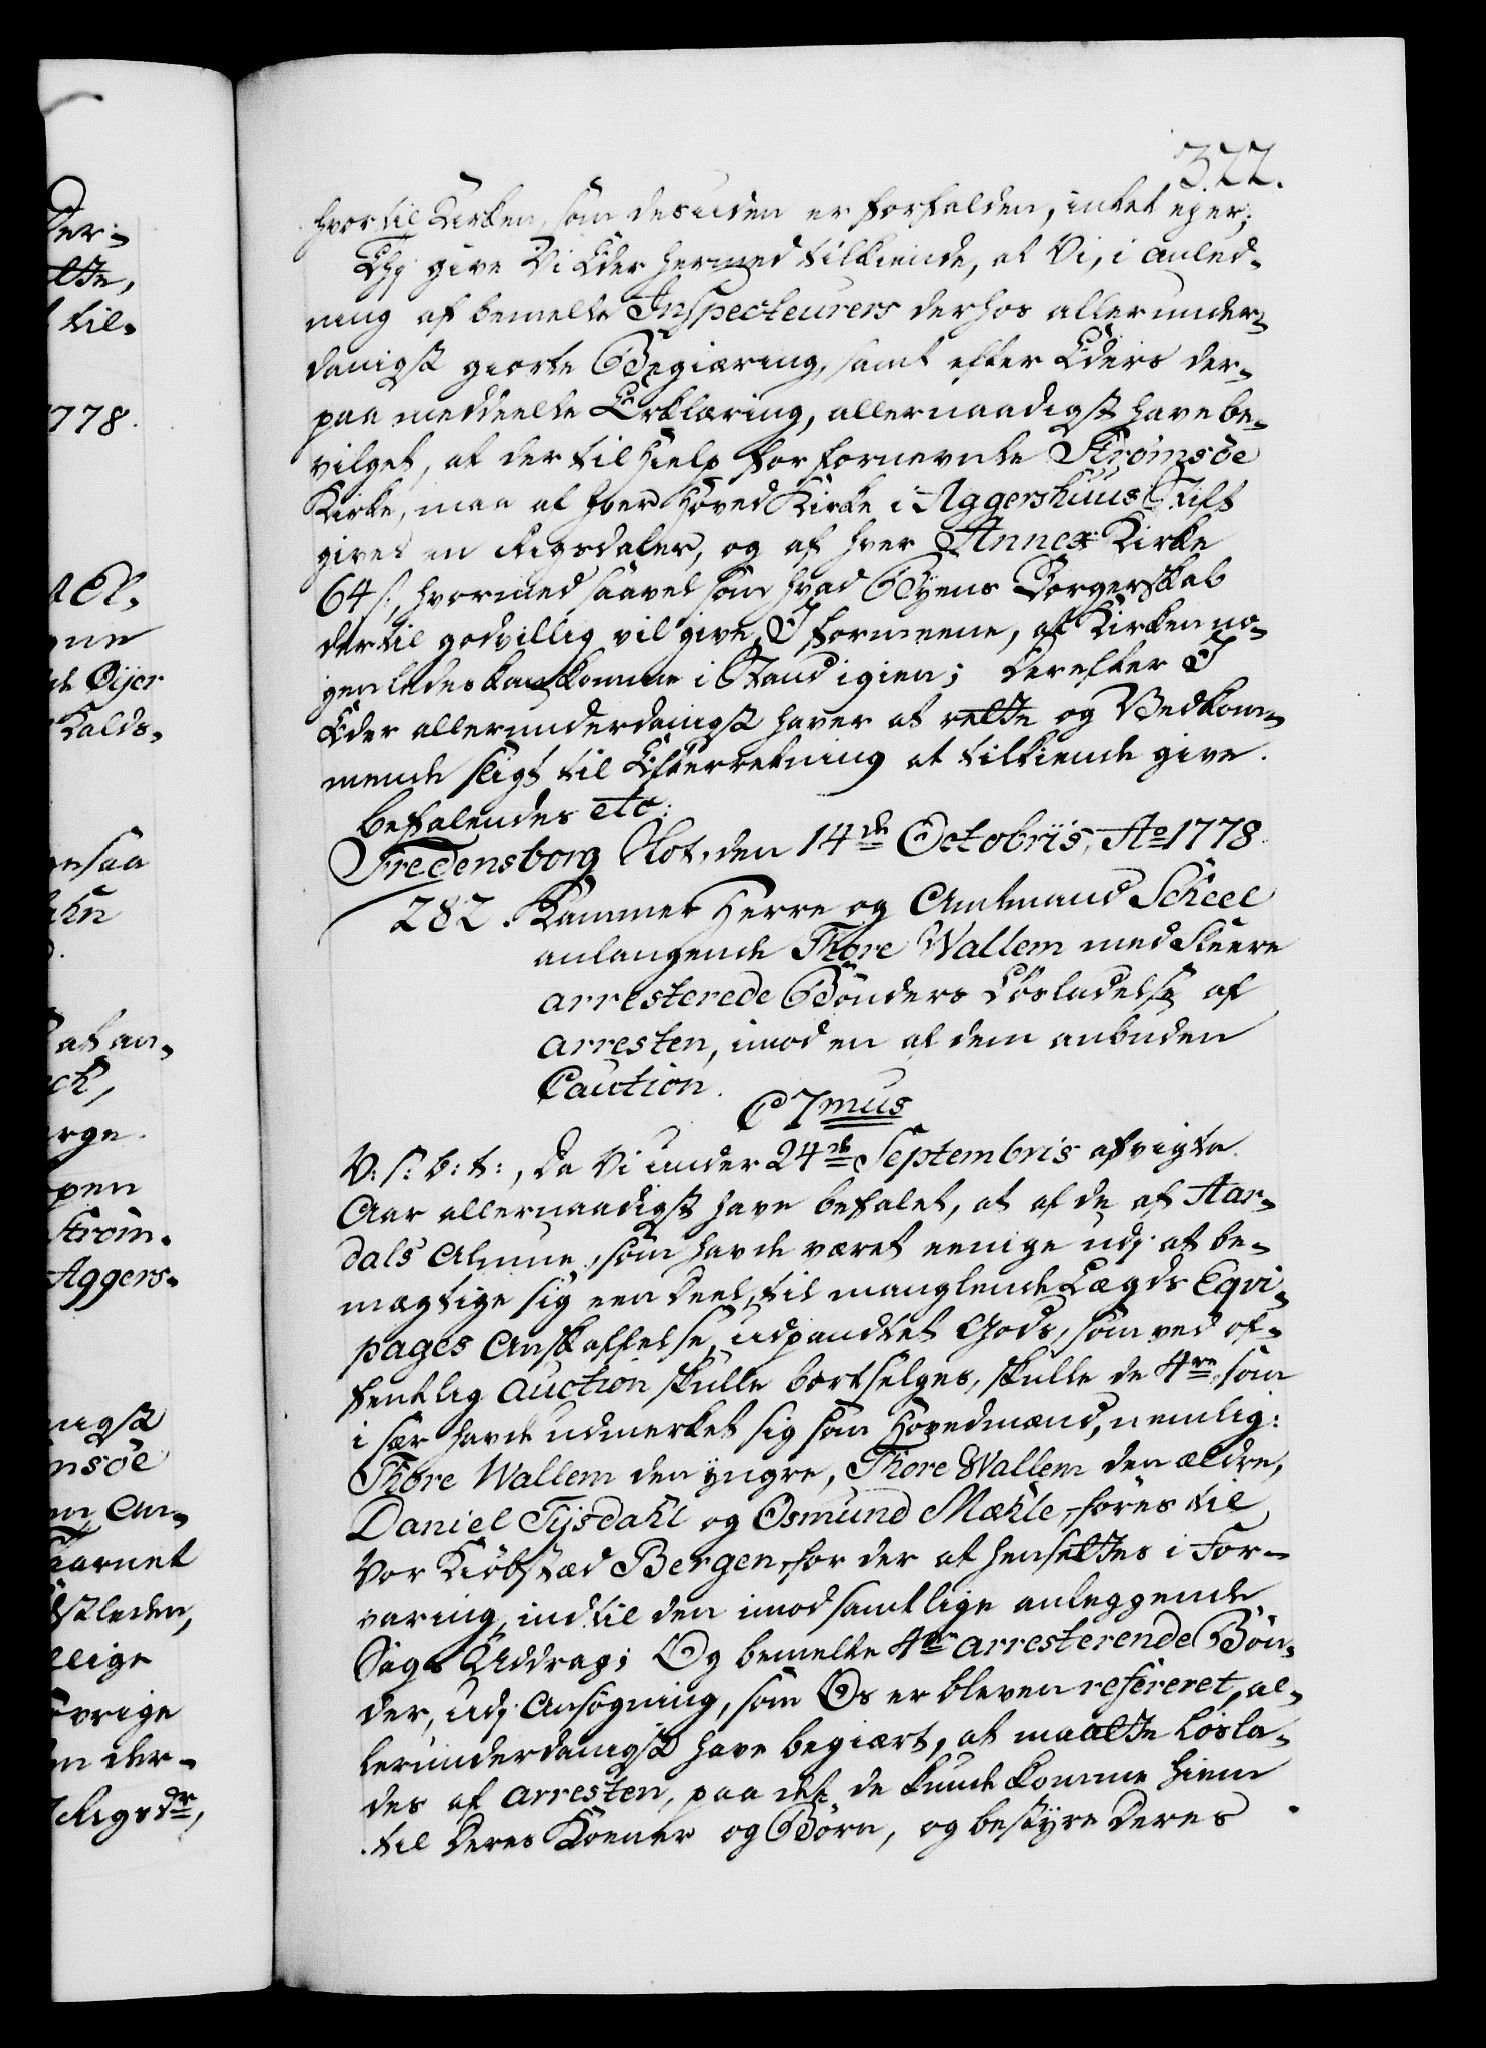 322.
hvortil Kirken, som desuden er forfalden, intet ejer;
Thj give Vi Eder hermed tilkiende, at Vi, i anled-
ning af bemelte Inspecteurers derhos allerunder-
danigst giorte Begiæring, samt efter Eders der-
paa meddeelte Erklæring, allernaadigst have be-
vilget, at der til Hielp for fornevnte Strömsöe
Kirke, maa af hver Hoved Kirke i Aggershuus Stift
gives en Rigsdaler, og af hver Annex Kirke
64 s:, hvormed saavel som hvad Byens Borgerskab
dertil godvillig vil give, I formeene, at Kirken no-
genledes kan komme i Stand igien; Derefter I
Eder allerunderdanigst haver at rette og Vedkom-
mende sligt til Efterretning at tilkiende give.
Befalendes etc:
Fredensborg Slot, den 14de Octobris, Ao 1778.
282. Kammer Herre og Amtmand Scheel
anlangende Thore Wallem med Fleere
arresterede Bönders Lösladelse af
arresten, imod en af dem anbuden
Caution.
C 7mus
V: s: b: t:, Da Vi under 24de Septembris afvigte
Aar allernaadigst have befalet, at af de af Aar-
dals Almue, som havde været eenige udj at be-
mægtige sig een Deel, til manglende Lægds Eqvi-
pages Anskaffelse, udpandtet Gods, som ved of-
fentlig Auction skulle bortselges, skulle de 4re, som
i sær havde udmerket sig som Hovedmænd, nemlig:
Thore Wallem den yngre, Thore Wallem den ældre,
Daniel Tysdahl og Osmund Mæhle, föres til
Vor Kiöbstæd Bergen, for der at hensettes i For-
varing, indtil den imod samtlige anleggende
Sags Uddrag; Og bemelte 4re arresterende Bön-
der, udj Ansögning, som Os er bleven refereret, al-
lerunderdanigst have begiært, at maatte lösla-
des af arresten, paa det de kunde komme hiem
til Deres Koener og Börn, og bestyre Deres